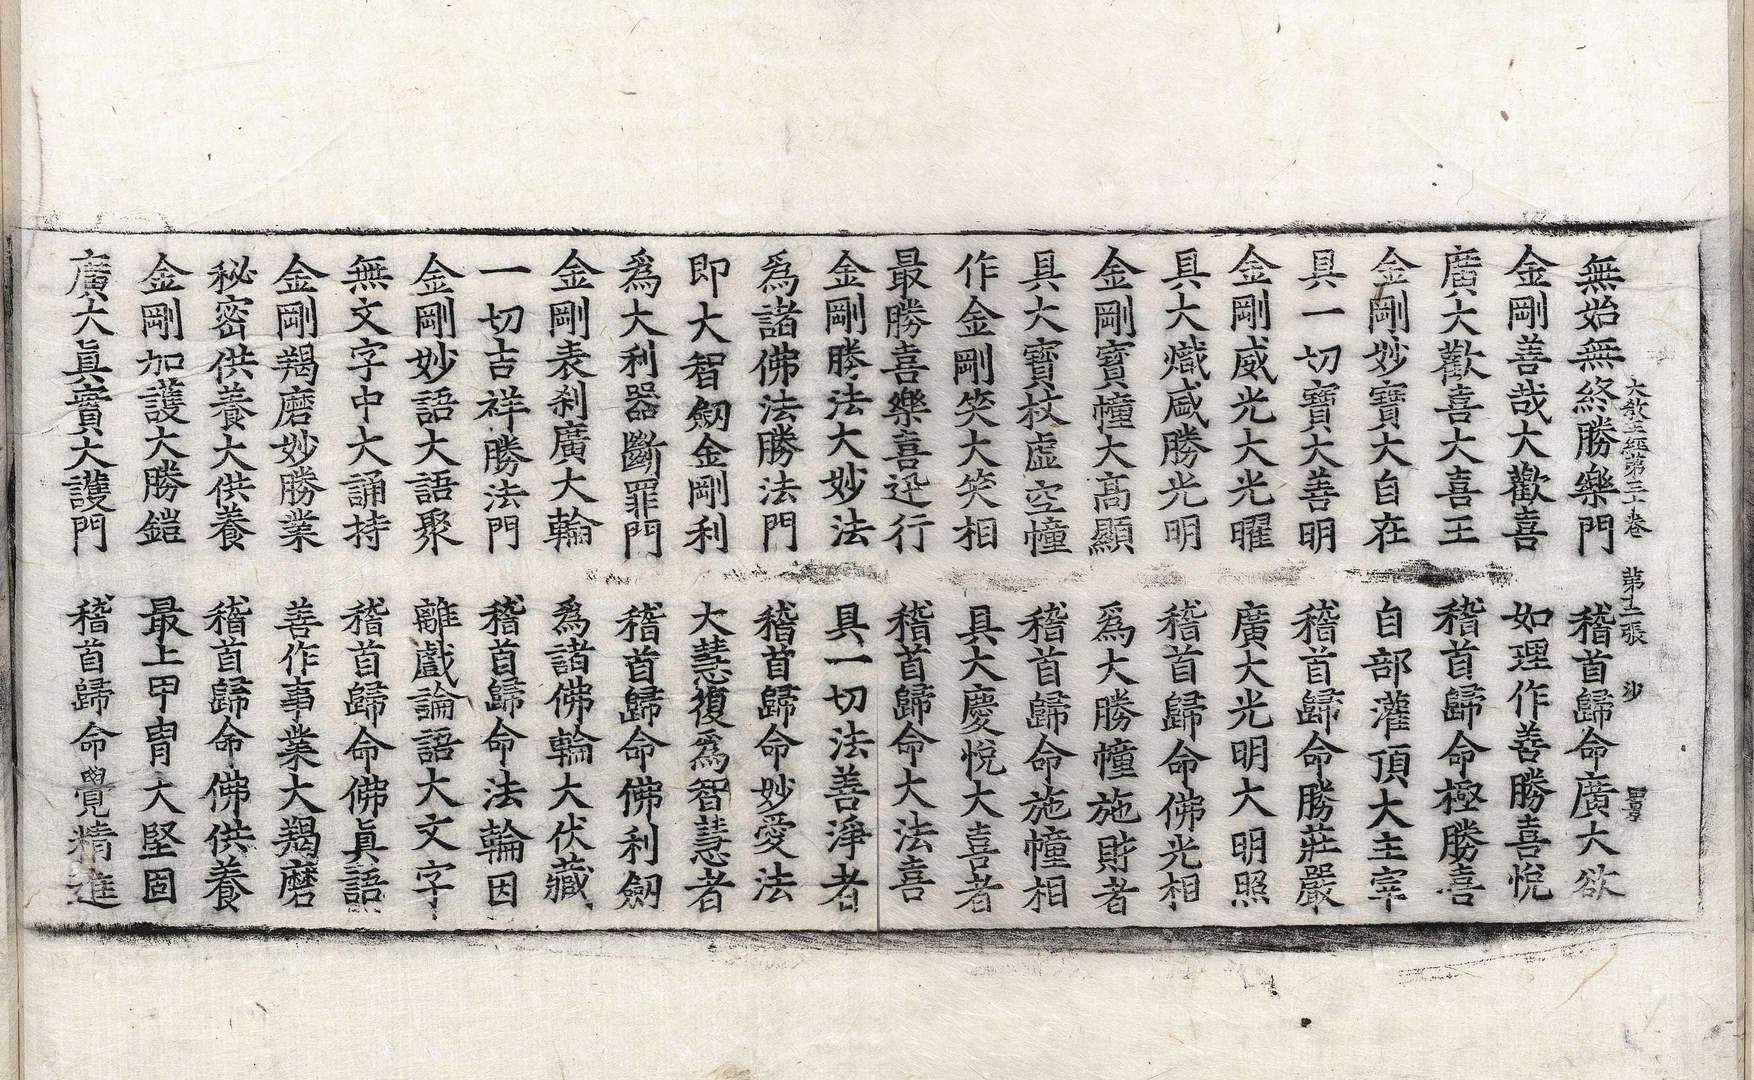 大教王經第三十卷 第十二張 沙
無始無終勝樂門 稽首歸命廣大欲
金剛善哉大歡喜 如理作善勝喜悅
廣大歡喜大喜王 稽首歸命極勝喜
金剛妙寶大自在 自部灌頂大主宰
具一切寶大善明 稽首歸命勝莊嚴
金剛威光大光曜 廣大光明大明照
具大熾盛勝光明 稽首歸命佛光相
金剛寶幢大高顯 爲大勝幢施財者
具大寶杖虛空幢 稽首歸命施幢相
作金剛笑大笑相 具大慶悅大喜者
最勝喜樂喜迅行 稽首歸命大法喜
金剛勝法大妙法 具一切法善淨者
爲諸佛法勝法門 稽首歸命妙愛法
即大智劒金剛利 大慧復爲智慧者
爲大利器斷罪門 稽首歸命佛利劒
金剛表刹廣大輪 爲諸佛輪大伏藏
一切吉祥勝法門 稽首歸命法輪因
金剛妙語大語聚 離戲論語大文字
無文字中大誦持 稽首歸命佛眞語
金剛羯磨妙勝業 善作事業大羯磨
秘密供養大供養 稽首歸命佛供養
金剛加護大勝鎧 最上甲冑大堅固
廣大眞實大護門 稽首歸命覺精進